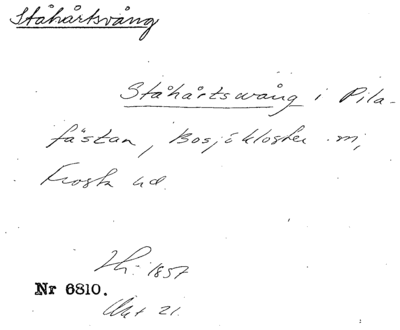 Ståhårtsvång
Ståhårtswång i Pila-
fästan, Bosjökloster m,
Frosta hd.
Hi. 1857
Nr 6810.
Akt 21.